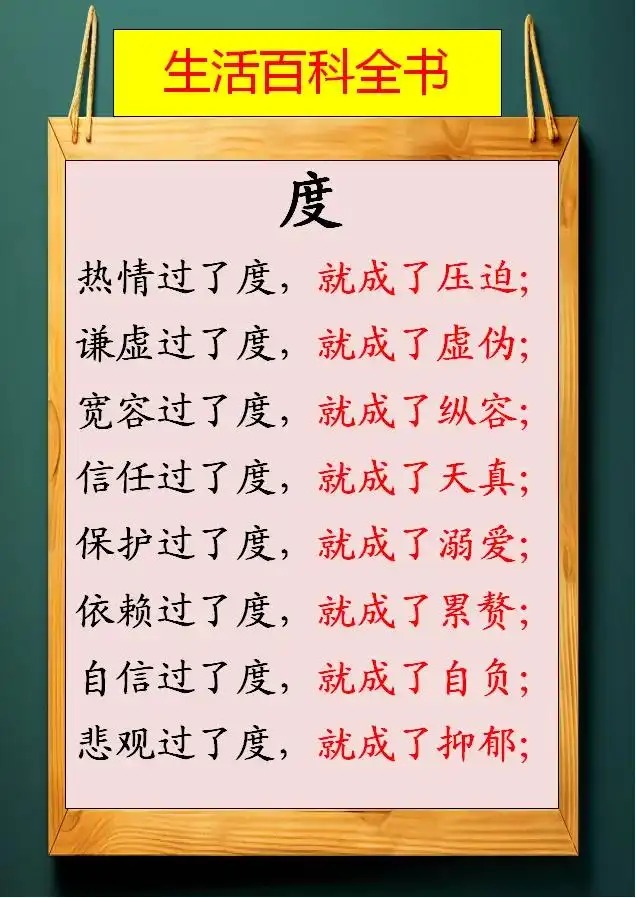 生活百科全书
度
热情过了度，就成了压迫;
谦虚过了度，就成了虚伪;
宽容过了度，就成了纵容;
信任过了度，就成了天真;
保护过了度，就成了溺爱;
依赖过了度，就成了累赘;
自信过了度，就成了自负;
悲观过了度，就成了抑郁;